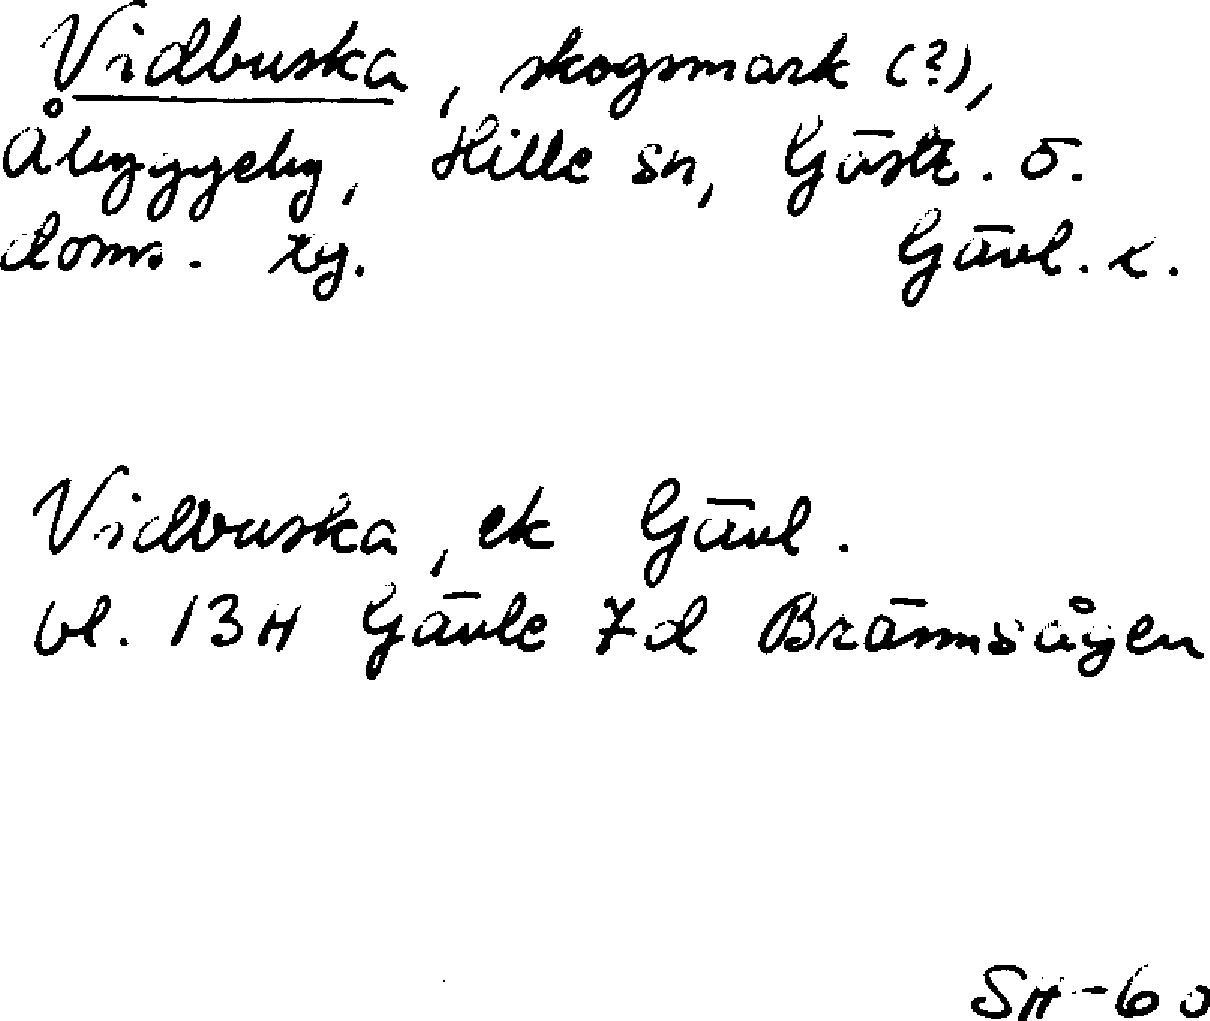 Vidbuska, skogsmark (?),
Åbyggeby, Hille sn, Gästr. ö.
doms. tg. Gävl. l.
Vidbuska, ek Gävl.
bl. 13H Gävle 7d Brännsågen
SH-60